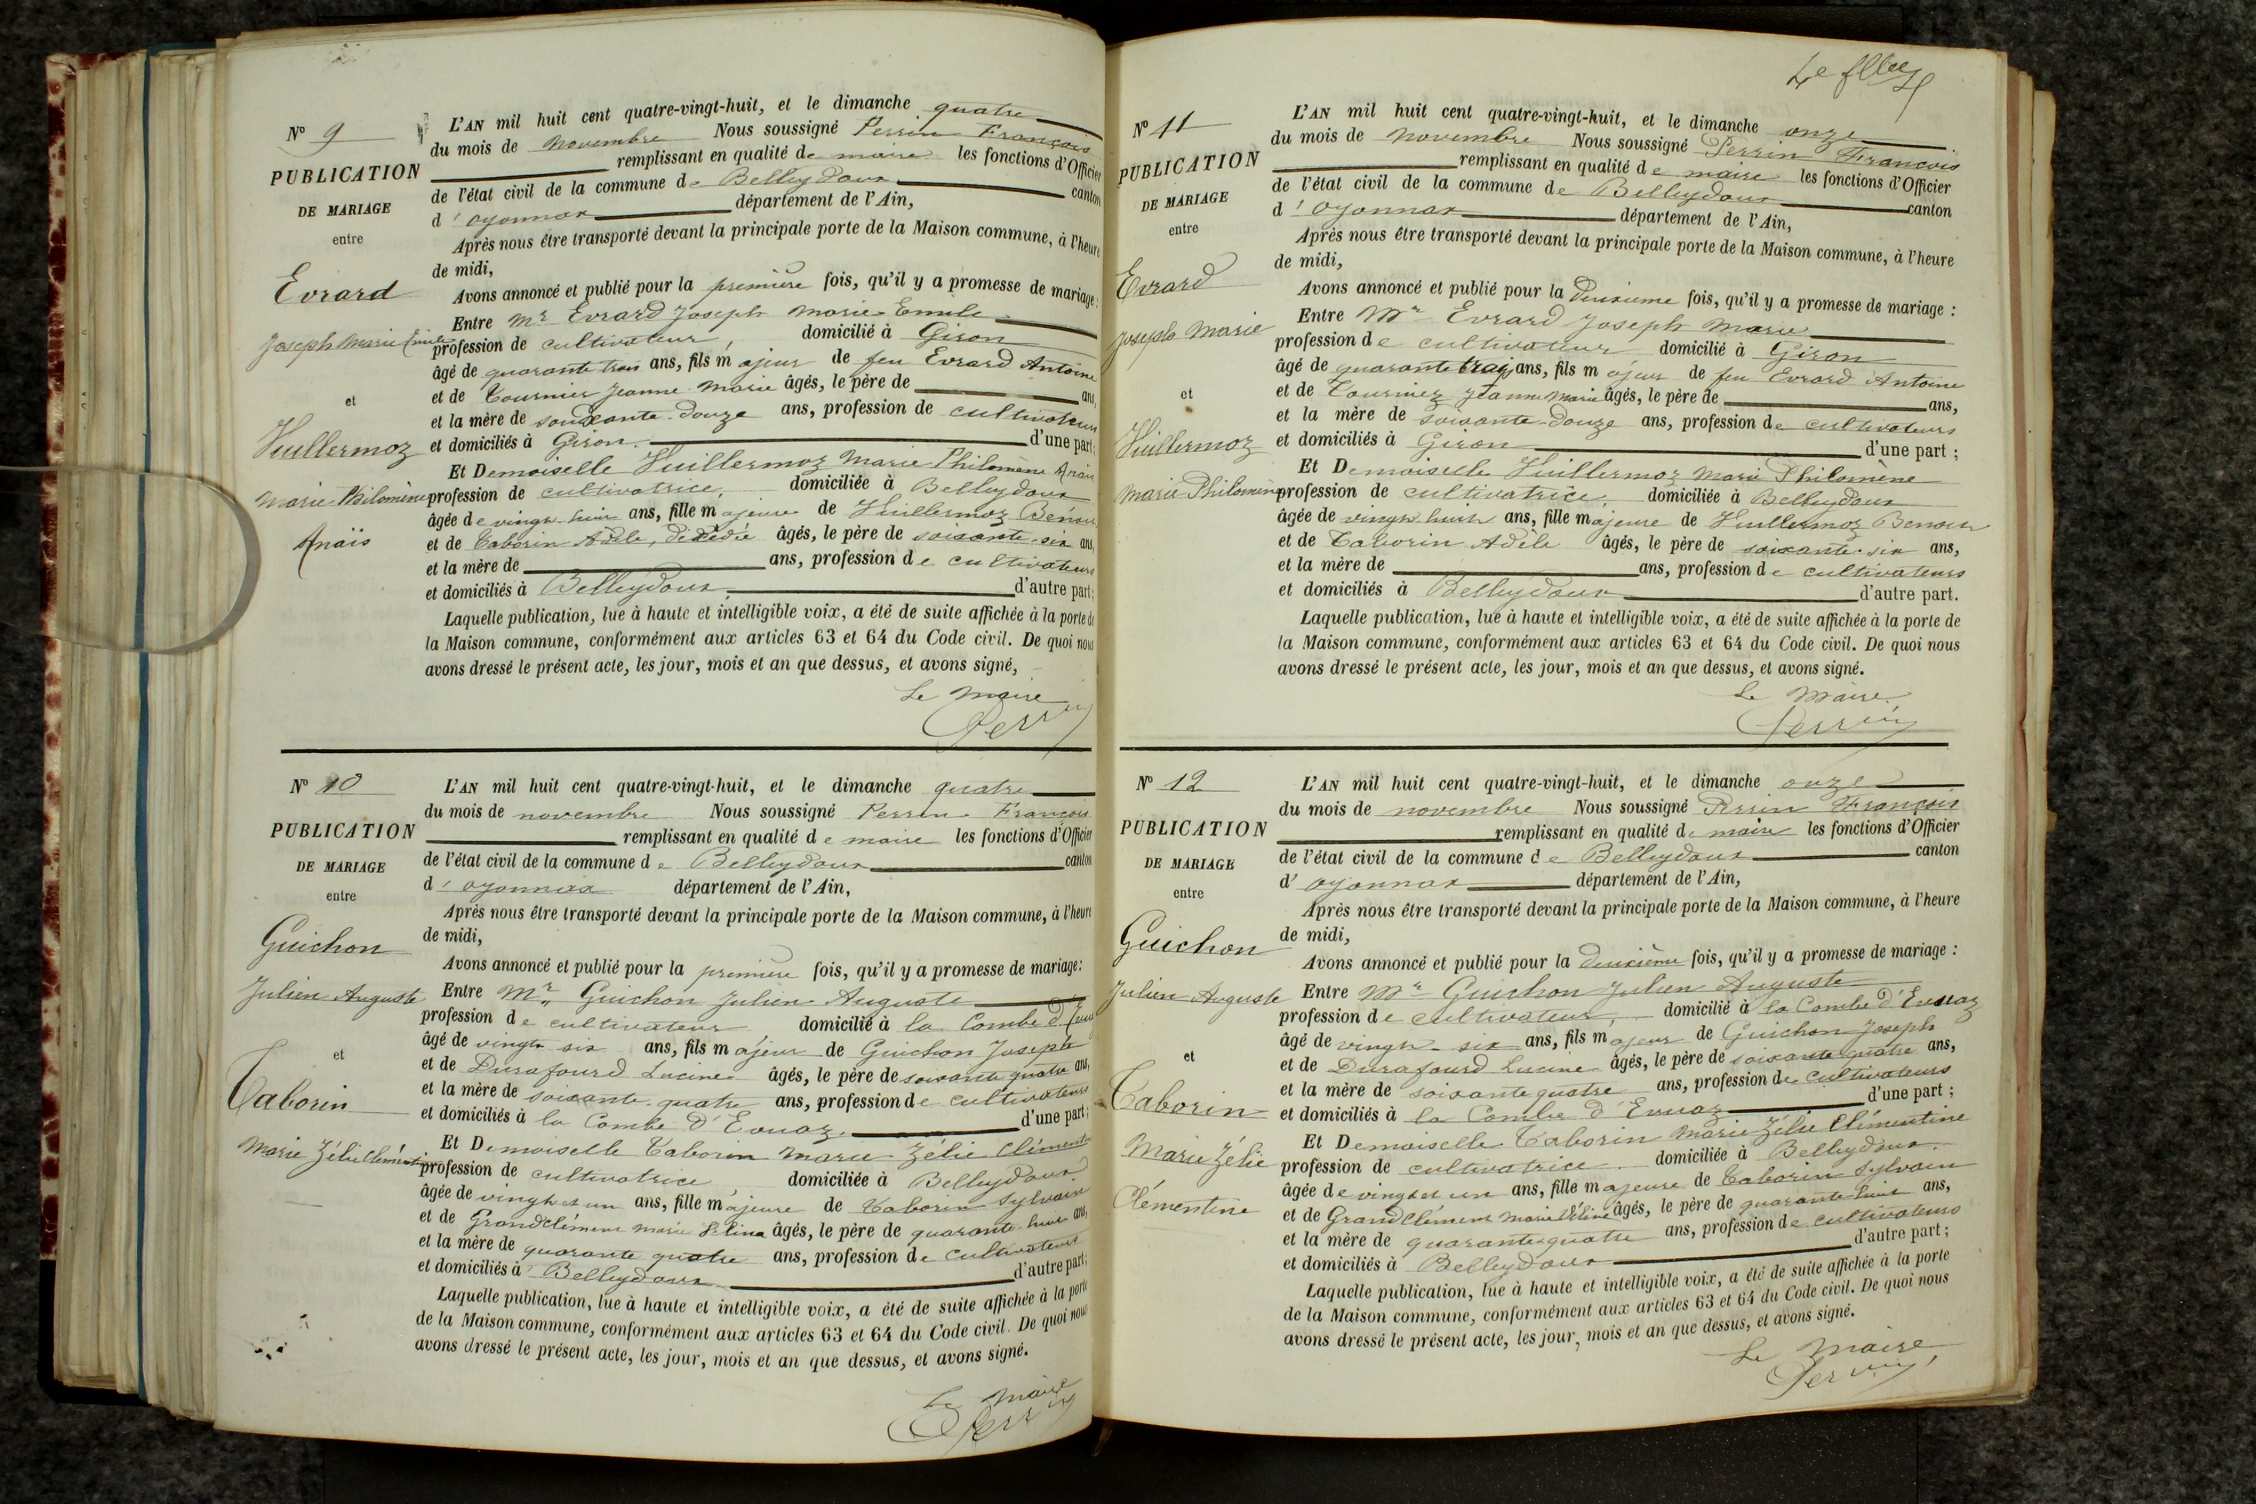 Nº 9
PUBLICATION
DE MARIAGE
entre
Evrard
Joseph Marie Emile
et
Vuillermoz
Marie Philomène
Anaïs
L'AN mil huit cent quatre-vingt-huit, et le dimanche quatre
du mois de novembre Nous soussigné Perrin François
remplissant en qualité de maire les fonctions d'Officier
de l'état civil de la commune de Belleydoux canton
d'oyonnax département de l'Ain,
Après nous être transporté devant la principale porte de la Maison commune, à l'heure
de midi,
Avons annoncé et publié pour la première fois, qu'il y a promesse de mariage :
Entre Mr Evrard Joseph Marie Emile
profession de cultivateur, domicilié à Giron
âgé de quarante trois ans, fils majeur de feu Evrard Antoine
et de Tournier Jeanne Marie âgés, le père de ans,
et la mère de soixante-douze ans, profession de cultivateurs
et domiciliés à Giron. d'une part ;
Et Demoiselle Vuillermoz Marie Philomène Anaïs
profession de cultivatrice, domiciliée à Belleydoux
âgée de vingt-huit ans, fille majeure de Vuillermoz Benoit
et de Taborin Adèle, décédée âgés, le père de soixante-six ans,
et la mère de ans, profession de cultivateurs
et domiciliés à Belleydoux. d'autre part ;
Laquelle publication, lue à haute et intelligible voix, a été de suite affichée à la porte de
la Maison commune, conformément aux articles 63 et 64 du Code civil. De quoi nous
avons dressé le présent acte, les jour, mois et an que dessus, et avons signé,
Le Maire
Perrin
Nº 10
PUBLICATION
DE MARIAGE
entre
Guichon
Julien Auguste
et
Taborin
Marie Zélie Clémentine
L'AN mil huit cent quatre-vingt-huit, et le dimanche quatre
du mois de novembre Nous soussigné Perrin François
remplissant en qualité de maire les fonctions d'Officier
de l'état civil de la commune de Belleydoux canton
d'oyonnax département de l'Ain,
Après nous être transporté devant la principale porte de la Maison commune, à l'heure
de midi,
Avons annoncé et publié pour la première fois, qu'il y a promesse de mariage :
Entre Mr Guichon Julien Auguste
profession de cultivateur, domicilié à la Combe d'Evuaz
âgé de vingt six ans, fils majeur de Guichon Joseph
et de Durafourd Lucine âgés, le père de soixante quatre ans,
et la mère de soixante-quatre ans, profession de cultivateurs
et domiciliés à la Combe d'Evuaz. d'une part ;
Et Demoiselle Taborin Marie Zélie Clémentine
profession de cultivatrice, domiciliée à Belleydoux
âgée de vingt et un ans, fille majeure de Taborin Sylvain
et de Grandclément Marie Céline âgés, le père de quarante-huit ans,
et la mère de quarante quatre ans, profession de cultivateurs
et domiciliés à Belleydoux d'autre part ;
Laquelle publication, lue à haute et intelligible voix, a été de suite affichée à la porte
de la Maison commune, conformément aux articles 63 et 64 du Code civil. De quoi nous
avons dressé le présent acte, les jour, mois et an que dessus, et avons signé.
Le Maire
Perrin
Nº 11
PUBLICATION
DE MARIAGE
entre
Evrard
Joseph Marie
et
Vuillermoz
Marie Philomène
L'AN mil huit cent quatre-vingt-huit, et le dimanche onze
du mois de novembre Nous soussigné Perrin François
remplissant en qualité de maire les fonctions d'Officier
de l'état civil de la commune de Belleydoux canton
d'oyonnax département de l'Ain,
Après nous être transporté devant la principale porte de la Maison commune, à l'heure
de midi,
Avons annoncé et publié pour la deuxième fois, qu'il y a promesse de mariage :
Entre Mr Evrard Joseph Marie
profession de cultivateur domicilié à Giron
âgé de quarante trois ans, fils majeur de feu Evrard Antoine
et de Tournier Jeanne Marie âgés, le père de ans,
et la mère de soixante-douze ans, profession de cultivateurs
et domiciliés à Giron d'une part ;
Et Demoiselle Vuillermoz Marie Philomène
profession de cultivatrice, domiciliée à Belleydoux
âgée de vingt huit ans, fille majeure de Vuillermoz Benoit
et de Taborin Adèle âgés, le père de soixante-six ans,
et la mère de ans, profession de cultivateurs
et domiciliés à Belleydoux d'autre part.
Laquelle publication, lue à haute et intelligible voix, a été de suite affichée à la porte de
la Maison commune, conformément aux articles 63 et 64 du Code civil. De quoi nous
avons dressé le présent acte, les jour, mois et an que dessus, et avons signé.
Le Maire.
Perrin
Nº 12
PUBLICATION
DE MARIAGE
entre
Guichon
Julien Auguste
et
Taborin
Marie Zélie
Clémentine
L'AN mil huit cent quatre-vingt-huit, et le dimanche onze
du mois de novembre Nous soussigné Perrin François
remplissant en qualité de maire les fonctions d'Officier
de l'état civil de la commune de Belleydoux canton
d'oyonnax département de l'Ain,
Après nous être transporté devant la principale porte de la Maison commune, à l'heure
de midi,
Avons annoncé et publié pour la deuxième fois, qu'il y a promesse de mariage :
Entre Mr Guichon Julien Auguste
profession de cultivateur, domicilié à la Combe d'Evuaz
âgé de vingt-six ans, fils majeur de Guichon Joseph
et de Durafourd Lucine âgés, le père de soixante quatre ans,
et la mère de soixante quatre ans, profession de cultivateurs
et domiciliés à la Combe d'Evuaz d'une part ;
Et Demoiselle Taborin Marie Zélie Clémentine
profession de cultivatrice domiciliée à Belleydoux
âgée de vingt et un ans, fille majeure de Taborin Sylvain
et de Grandclément Marie Céline âgés, le père de quarante-huit ans,
et la mère de quarante quatre ans, profession de cultivateurs
et domiciliés à Belleydoux d'autre part ;
Laquelle publication, lue à haute et intelligible voix, a été de suite affichée à la porte
de la Maison commune, conformément aux articles 63 et 64 du Code civil. De quoi nous
avons dressé le présent acte, les jour, mois et an que dessus, et avons signé.
Le Maire
Perrin